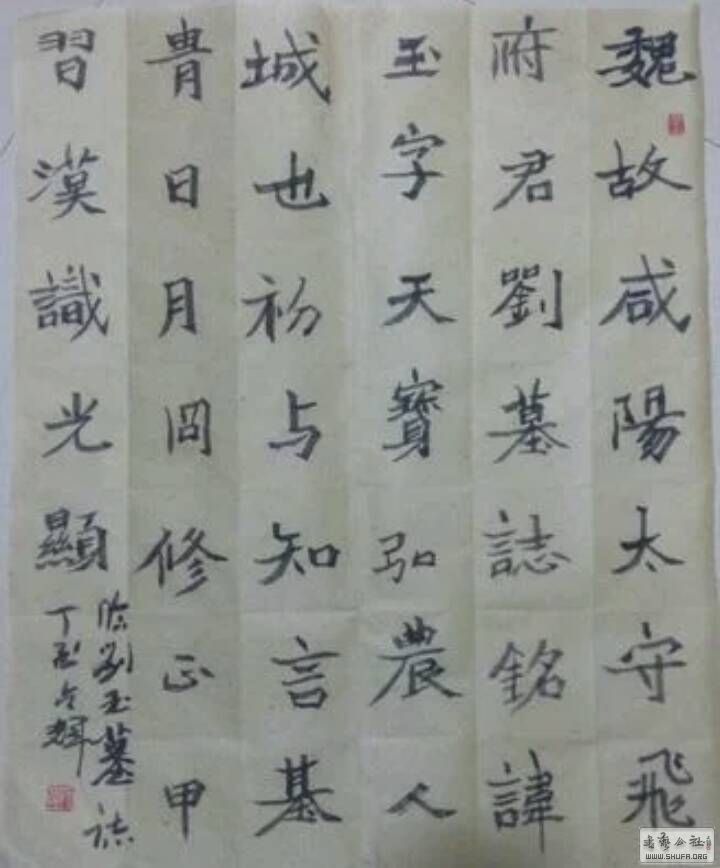 魏故咸陽太守飛
府君劉墓誌銘諱
玉字天寶弘農人
城也初与知言基
胄日月冏修正甲
習漢識光顯
临劉玉墓誌
WWW.SHUFA.ORG